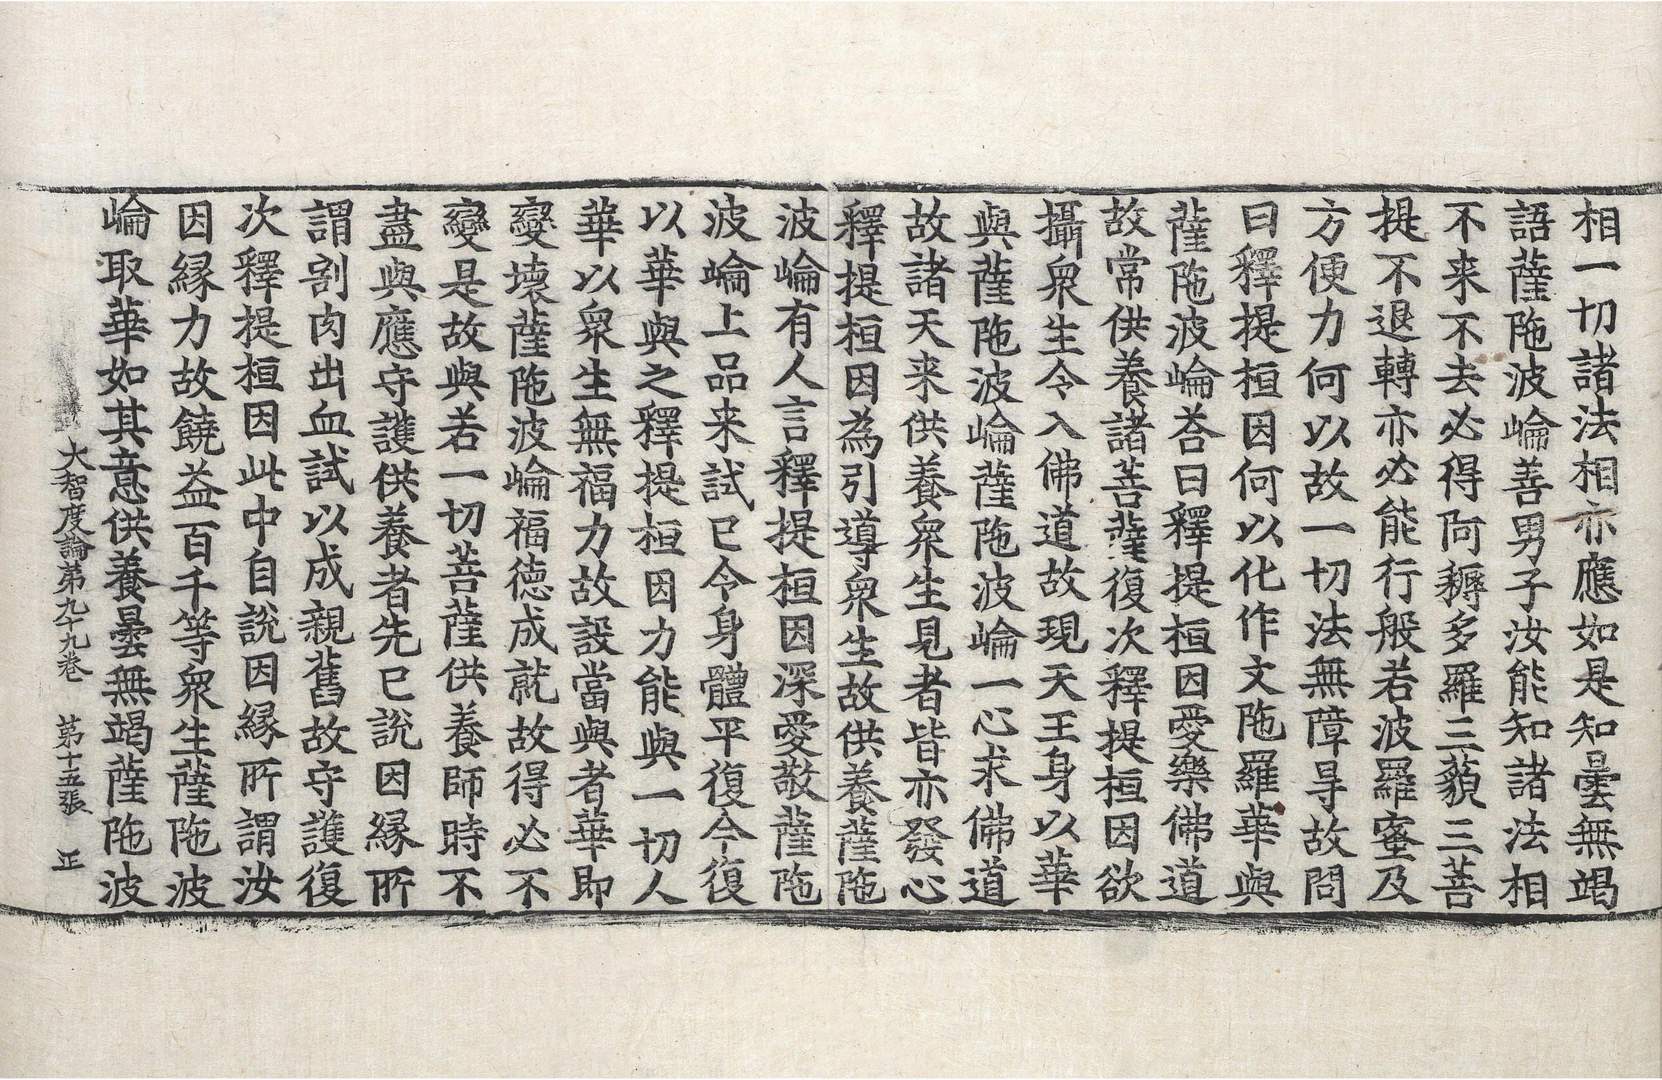 相一切諸法相亦應如是知曇無竭
語薩陁波崘善男子汝能知諸法相
不来不去必得阿耨多羅三藐三菩
提不退轉亦必能行般若波羅蜜及
方便力何以故一切法無障㝵故問
曰釋提桓因何以化作文陁羅華與
薩陁波崘荅曰釋提桓因愛樂佛道
故常供養諸菩薩復次釋提桓因欲
攝衆生令入佛道故現天王身以華
與薩陁波崘薩陁波崘一心求佛道
故諸天来供養衆生見者皆亦發心
釋提桓因為引導衆生故供養薩陁
波崘有人言釋提桓因深愛敬薩陁
波崘上品来試已令身體平復今復
以華與之釋提桓因力能與一切人
華以衆生無福力故設當與者華即
變壞薩陁波崘福德成就故得必不
變是故與若一切菩薩供養師時不
盡與應守護供養者先已說因緣所
謂割肉出血試以成親舊故守護復
次釋提桓因此中自說因緣所謂汝
因緣力故饒益百千等衆生薩陁波
崘取華如其意供養曇無竭薩陁波
大智度論第九十九卷 第十五張 正